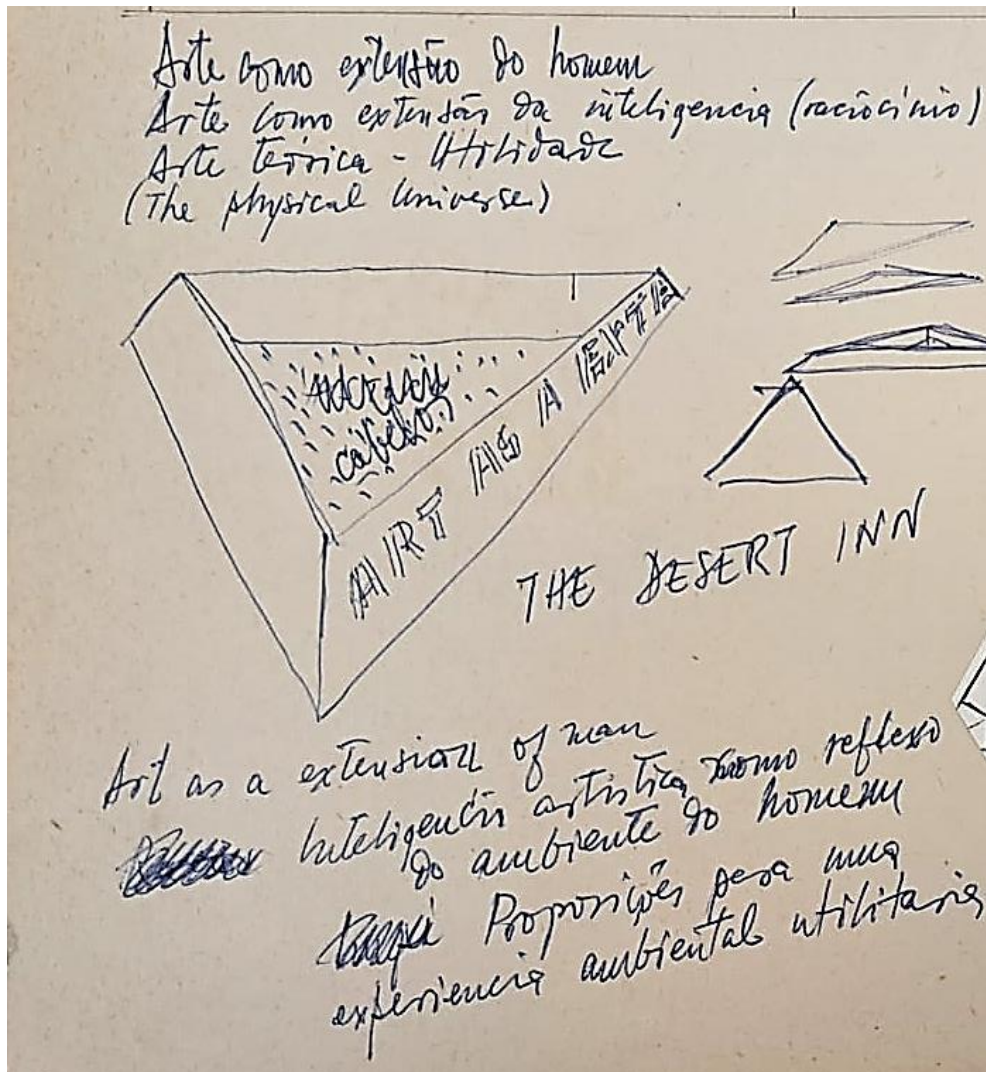 Arte como extensão do homem
Arte como extensão da inteligencia (raciocínio)
Arte teórica - Utilidade
(The physical Universe)
cabelo?
ART AS A
THE DESERT INN
Art as a extension of man
Inteligencia artistica como reflexo
do ambiente do homem
Proposições para uma
experiencia ambiental utilitaria